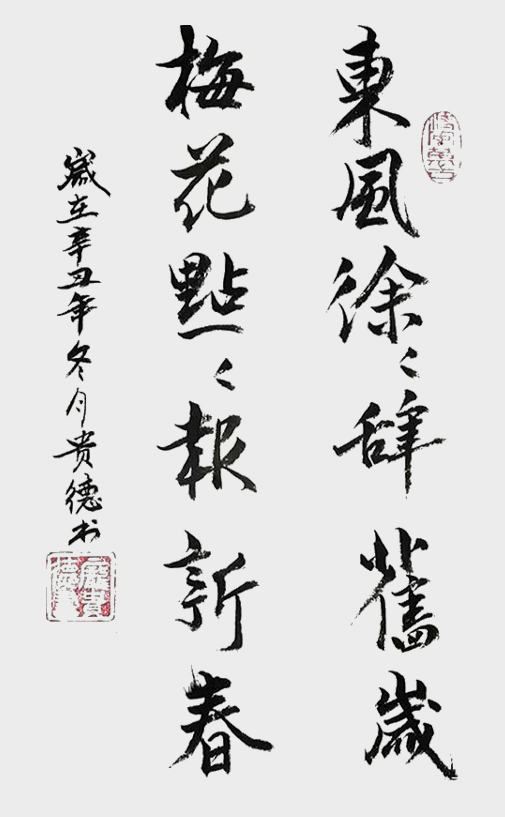 東風徐々辞舊歲
梅花點々報新春
歲在辛丑年冬月貴德书